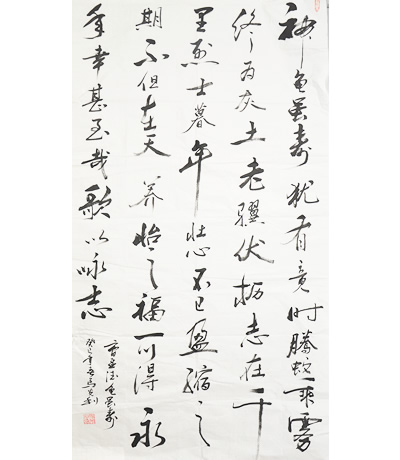 神龟虽寿犹有竟时腾蛇乘雾
终为灰土老骥伏枥志在千
里烈士暮年壮心不已盈缩之
期不但在天养怡之福可得永
年幸甚至哉歌以咏志
曹孟德龟虽寿
癸巳年